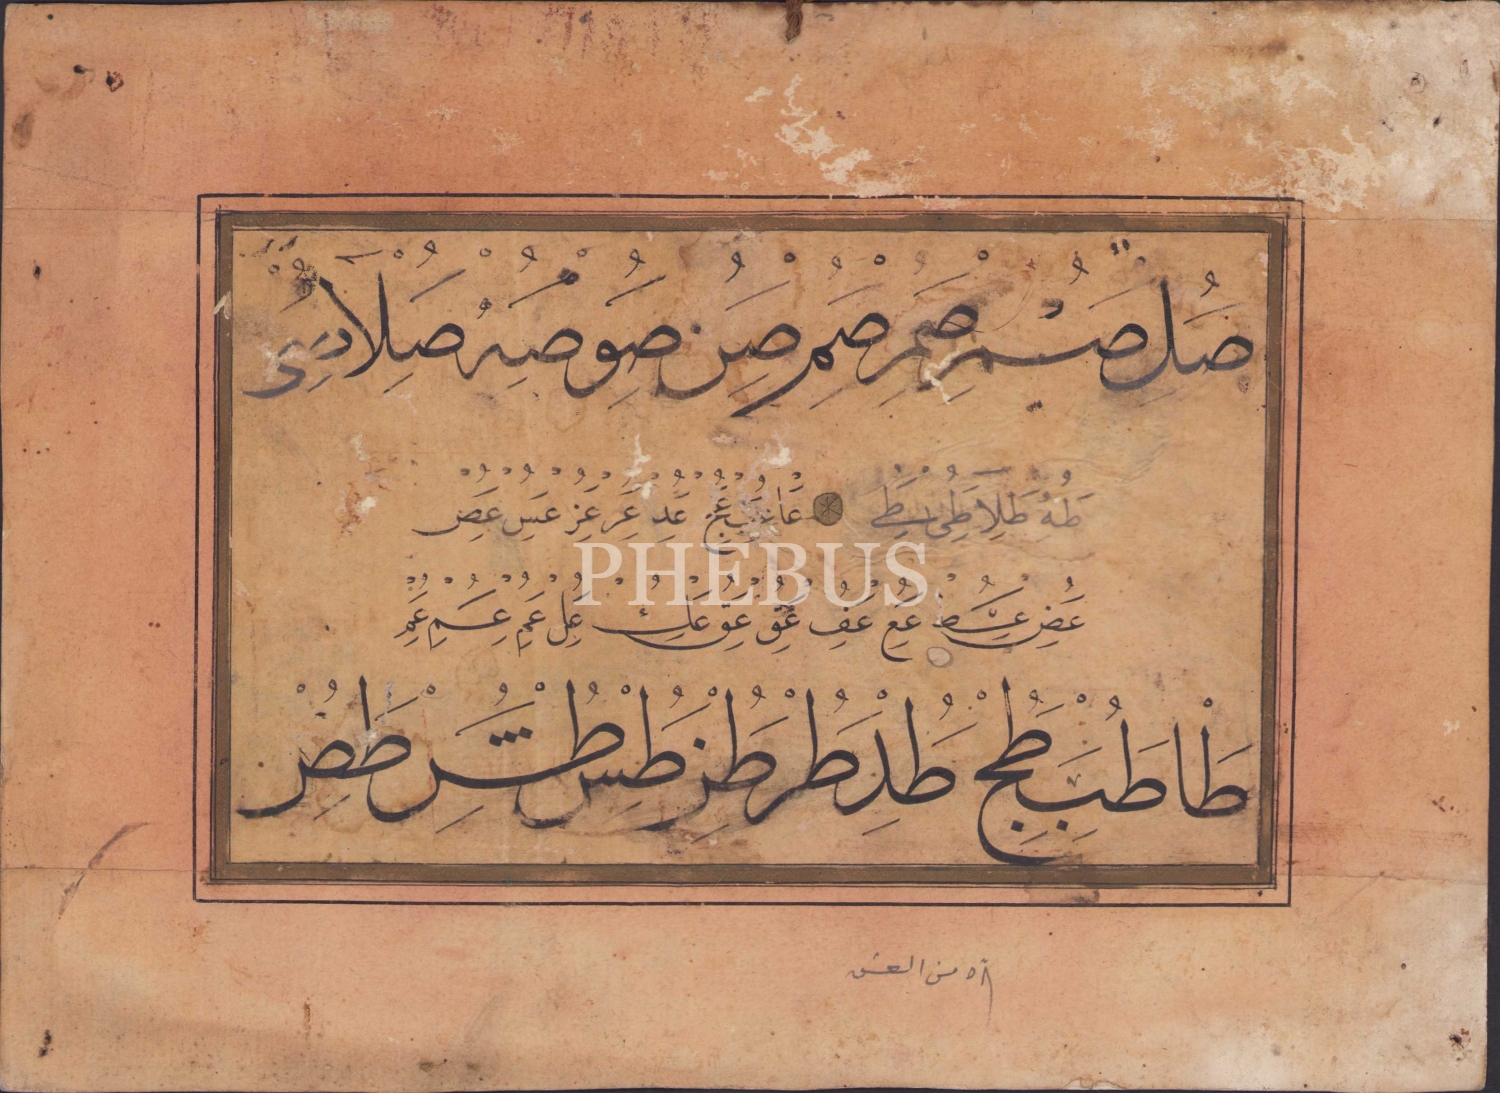 صل صم صم صم صن صو صه صلا صی
طه طلا طی طے عا عب عج عد عر عز عس عص
عض عط عع عف عق عو عك عل عم عم عم
طا طب طج طد طر طز طس طش طص
PHEBUS
آه من العشق